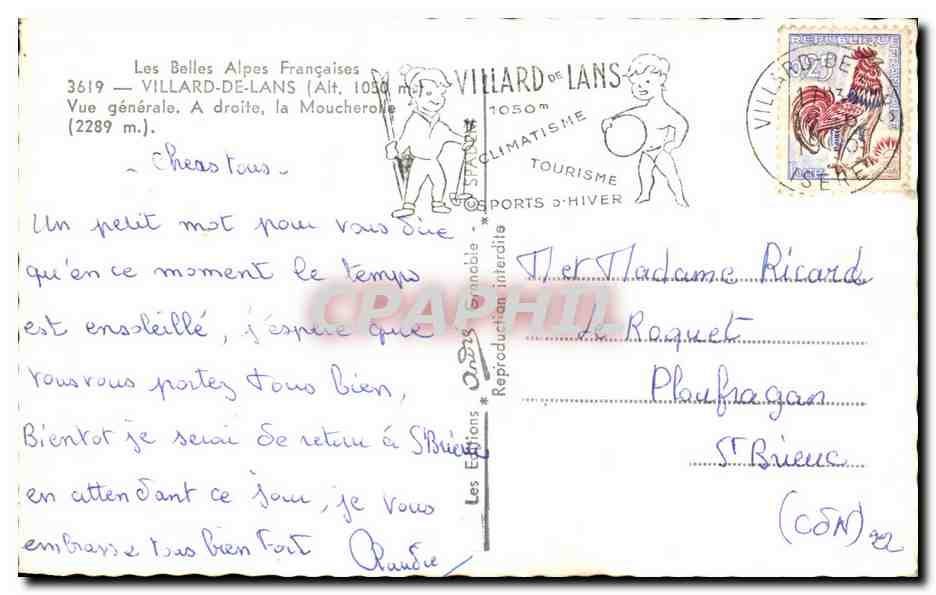 Les Belles Alpes Françaises
3619 — VILLARD-DE-LANS (Alt. 1050 m.)
Vue générale. A droite, la Moucherolle
(2289 m.).
VILLARD DE LANS
1050m
CLIMATISME
TOURISME
SPORTS D'HIVER
VILLARD-DE-
ISERE
REPUBLIQUE
- Chers tous -
Un petit mot pour vous dire
qu'en ce moment le temps
est ensoleillé, j'espère que
vous vous portez tous bien,
Bientot je serai de retour à St Brieuc
en attendant ce jour, je vous
embrasse tous bien fort Claudie
Les Editions * André Grenoble - *
Reproduction interdite
M et Madame Ricard
Le Roquet
Ploufragan
St Brieuc
(CDN) 22
CPAPHIL